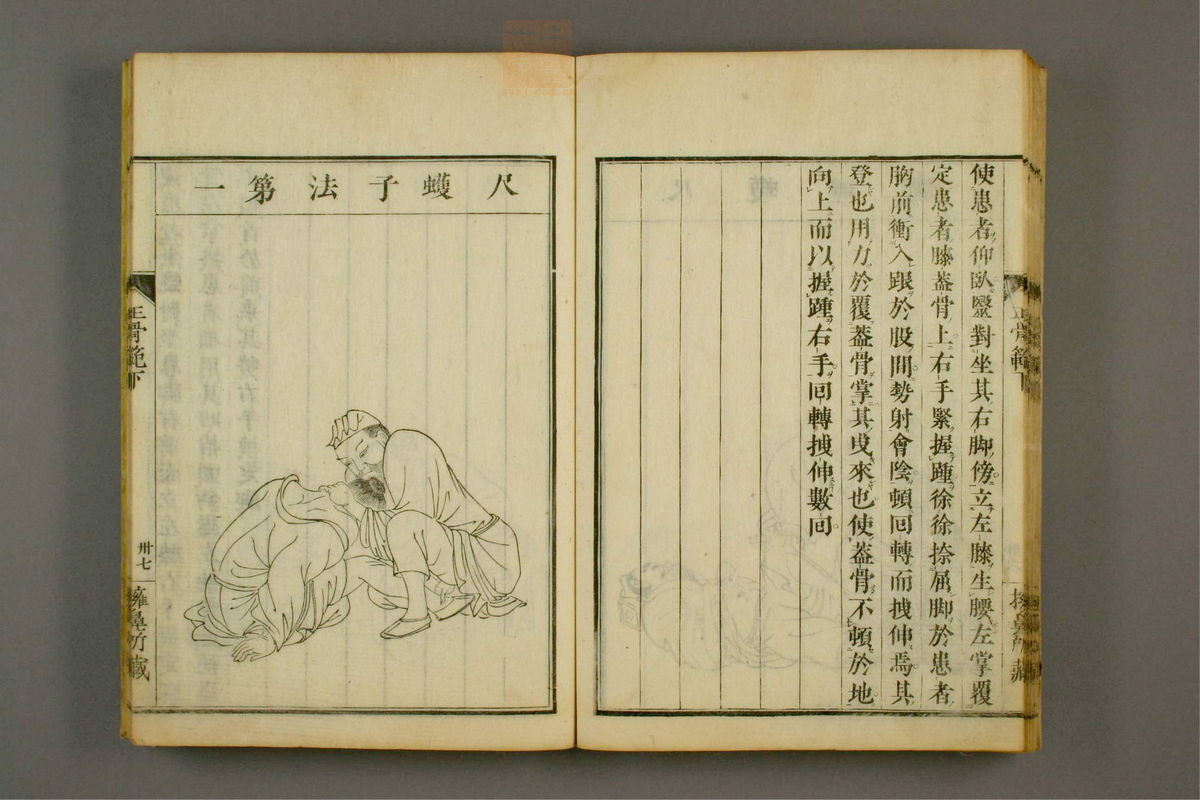 使患者仰臥醫對坐其右脚傍立左膝生腰左掌覆
定患者膝蓋骨上右手緊握踵徐徐捺屈脚於患者
胸前衝入跟於股間勢射會陰頓回轉而拽伸焉其
登也用力於覆蓋骨掌其曳來也使蓋骨不頓於地
向上而以握踵右手回轉拽伸數回
正骨範下
尺蠖子法第一
正骨範下
卅七